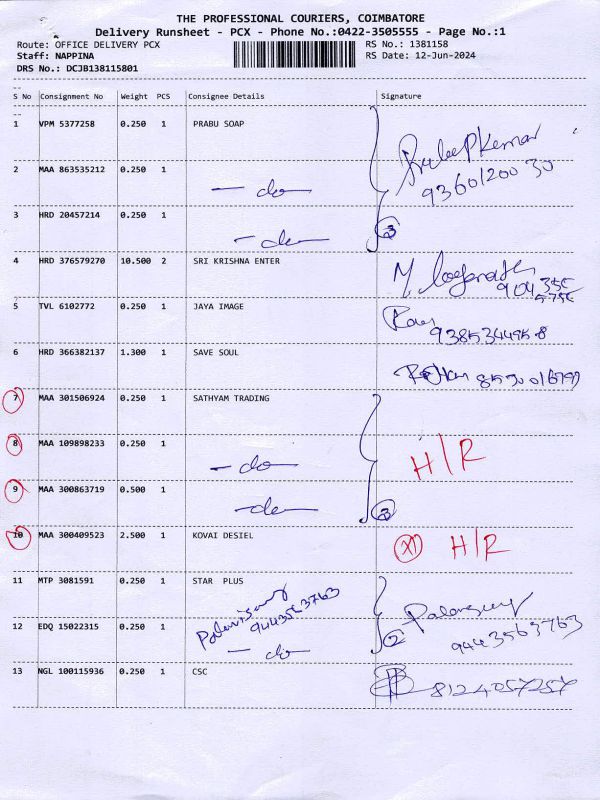 THE PROFESSIONAL COURIERS, COIMBATORE
Delivery Runsheet - PCX - Phone No.:0422-3505555 - Page No.:1
Route: OFFICE DELIVERY PCX RS No.: 1381158
Staff: NAPPINA RS Date: 12-Jun-2024
DRS No.: DCJB138115801
S No Consignment No Weight PCS Consignee Details Signature
1 VPM 5377258 0.250 1 PRABU SOAP
2 MAA 863535212 0.250 1
- do - 9360120030
3 HRD 20457214 0.250 1
- do - 3
4 HRD 376579270 10.500 2 SRI KRISHNA ENTER
5 TVL 6102772 0.250 1 JAYA IMAGE
6 HRD 366382137 1.300 1 SAVE SOUL
7 MAA 301506924 0.250 1 SATHYAM TRADING
8 MAA 109898233 0.250 1
- do - H/R
9 MAA 300863719 0.500 1
- do - 3
10 MAA 300409523 2.500 1 KOVAI DESIEL H/R
11 MTP 3081591 0.250 1 STAR PLUS
9443563763
12 EDQ 15022315 0.250 1 2 9443563763
- do -
13 NGL 100115936 0.250 1 CSC 8124057257